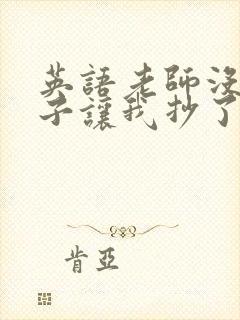 英語老師沒
子讓我抄了
肯亞